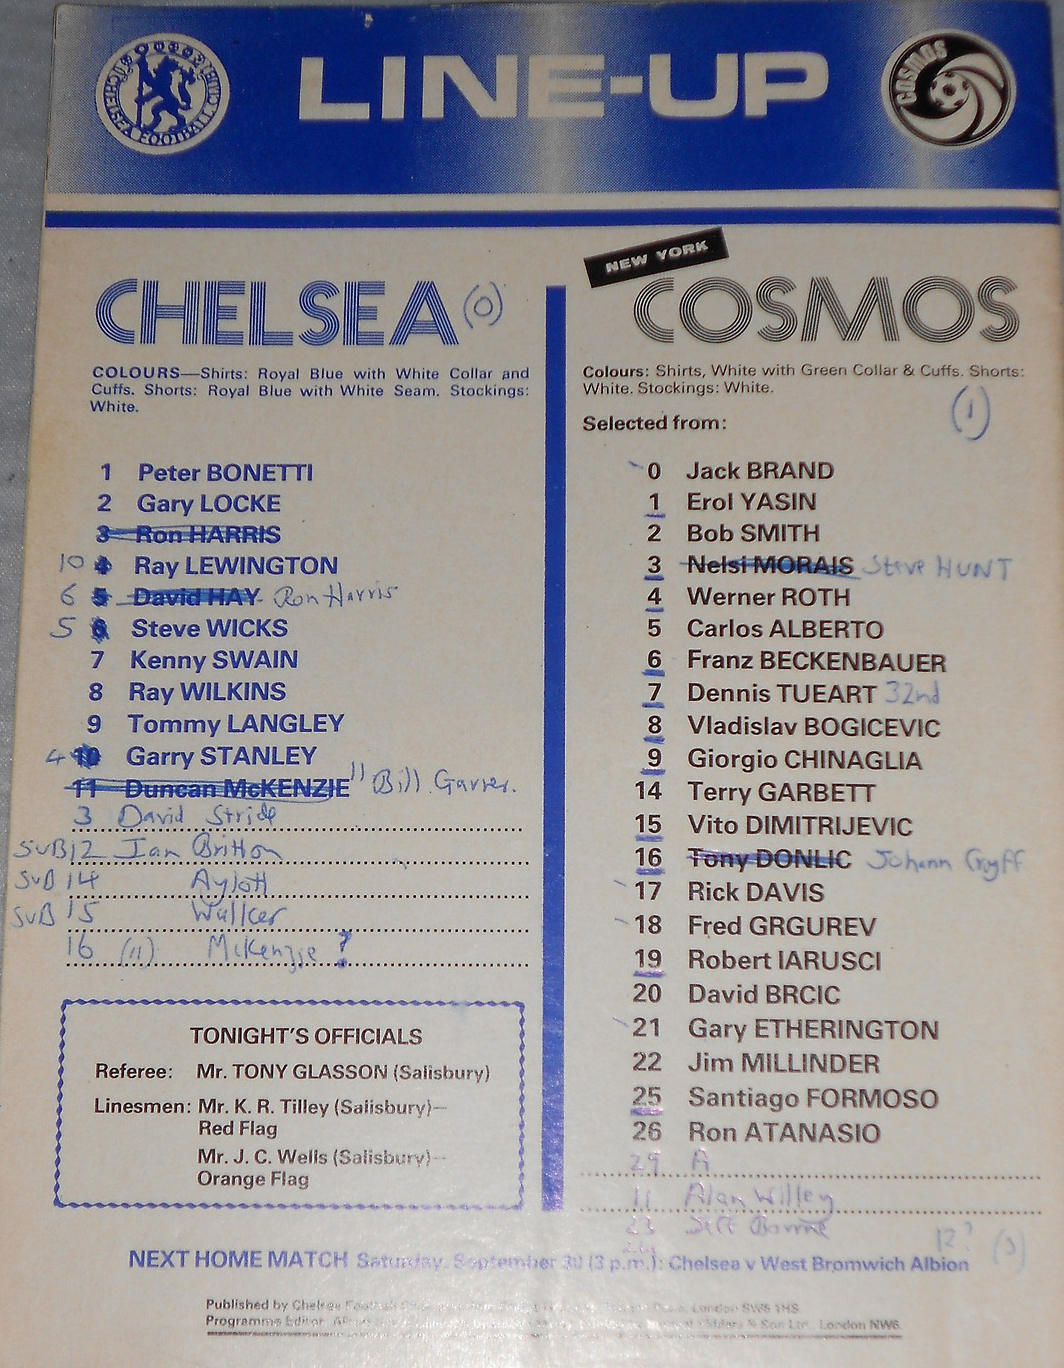 CHELSEA FOOTBALL CLUB
LINE-UP
COSMOS
CHELSEA (0)
COLOURS—Shirts: Royal Blue with White Collar and
Cuffs. Shorts: Royal Blue with White Seam. Stockings:
White.
1 Peter BONETTI
2 Gary LOCKE
3 Ron HARRIS
10 4 Ray LEWINGTON
6 5 David HAY Ron Harris
5 6 Steve WICKS
7 Kenny SWAIN
8 Ray WILKINS
9 Tommy LANGLEY
4 10 Garry STANLEY
11 Duncan McKENZIE 11 Bill Garner.
3 David Stride
SUB 12 Ian Britton
SUB 14 Aylott
SUB 15 Walker
16 (11) McKenzie ?
TONIGHT'S OFFICIALS
Referee: Mr. TONY GLASSON (Salisbury)
Linesmen: Mr. K. R. Tilley (Salisbury)—
Red Flag
Mr. J. C. Wells (Salisbury)—
Orange Flag
NEW YORK
COSMOS
Colours: Shirts, White with Green Collar & Cuffs. Shorts:
White. Stockings: White.
(1)
Selected from:
0 Jack BRAND
1 Erol YASIN
2 Bob SMITH
3 Nelsi MORAIS Steve HUNT
4 Werner ROTH
5 Carlos ALBERTO
6 Franz BECKENBAUER
7 Dennis TUEART 32nd
8 Vladislav BOGICEVIC
9 Giorgio CHINAGLIA
14 Terry GARBETT
15 Vito DIMITRIJEVIC
16 Tony DONLIC Johann Cryff
17 Rick DAVIS
18 Fred GRGUREV
19 Robert IARUSCI
20 David BRCIC
21 Gary ETHERINGTON
22 Jim MILLINDER
25 Santiago FORMOSO
26 Ron ATANASIO
29 A
11 Alan Willey
23 Jeff
12? (3)
NEXT HOME MATCH Saturday, September 30 (3 p.m.): Chelsea v West Bromwich Albion
Published by Chelsea London SW6 1HS.
Programme Editor & Son Ltd., London NW6.